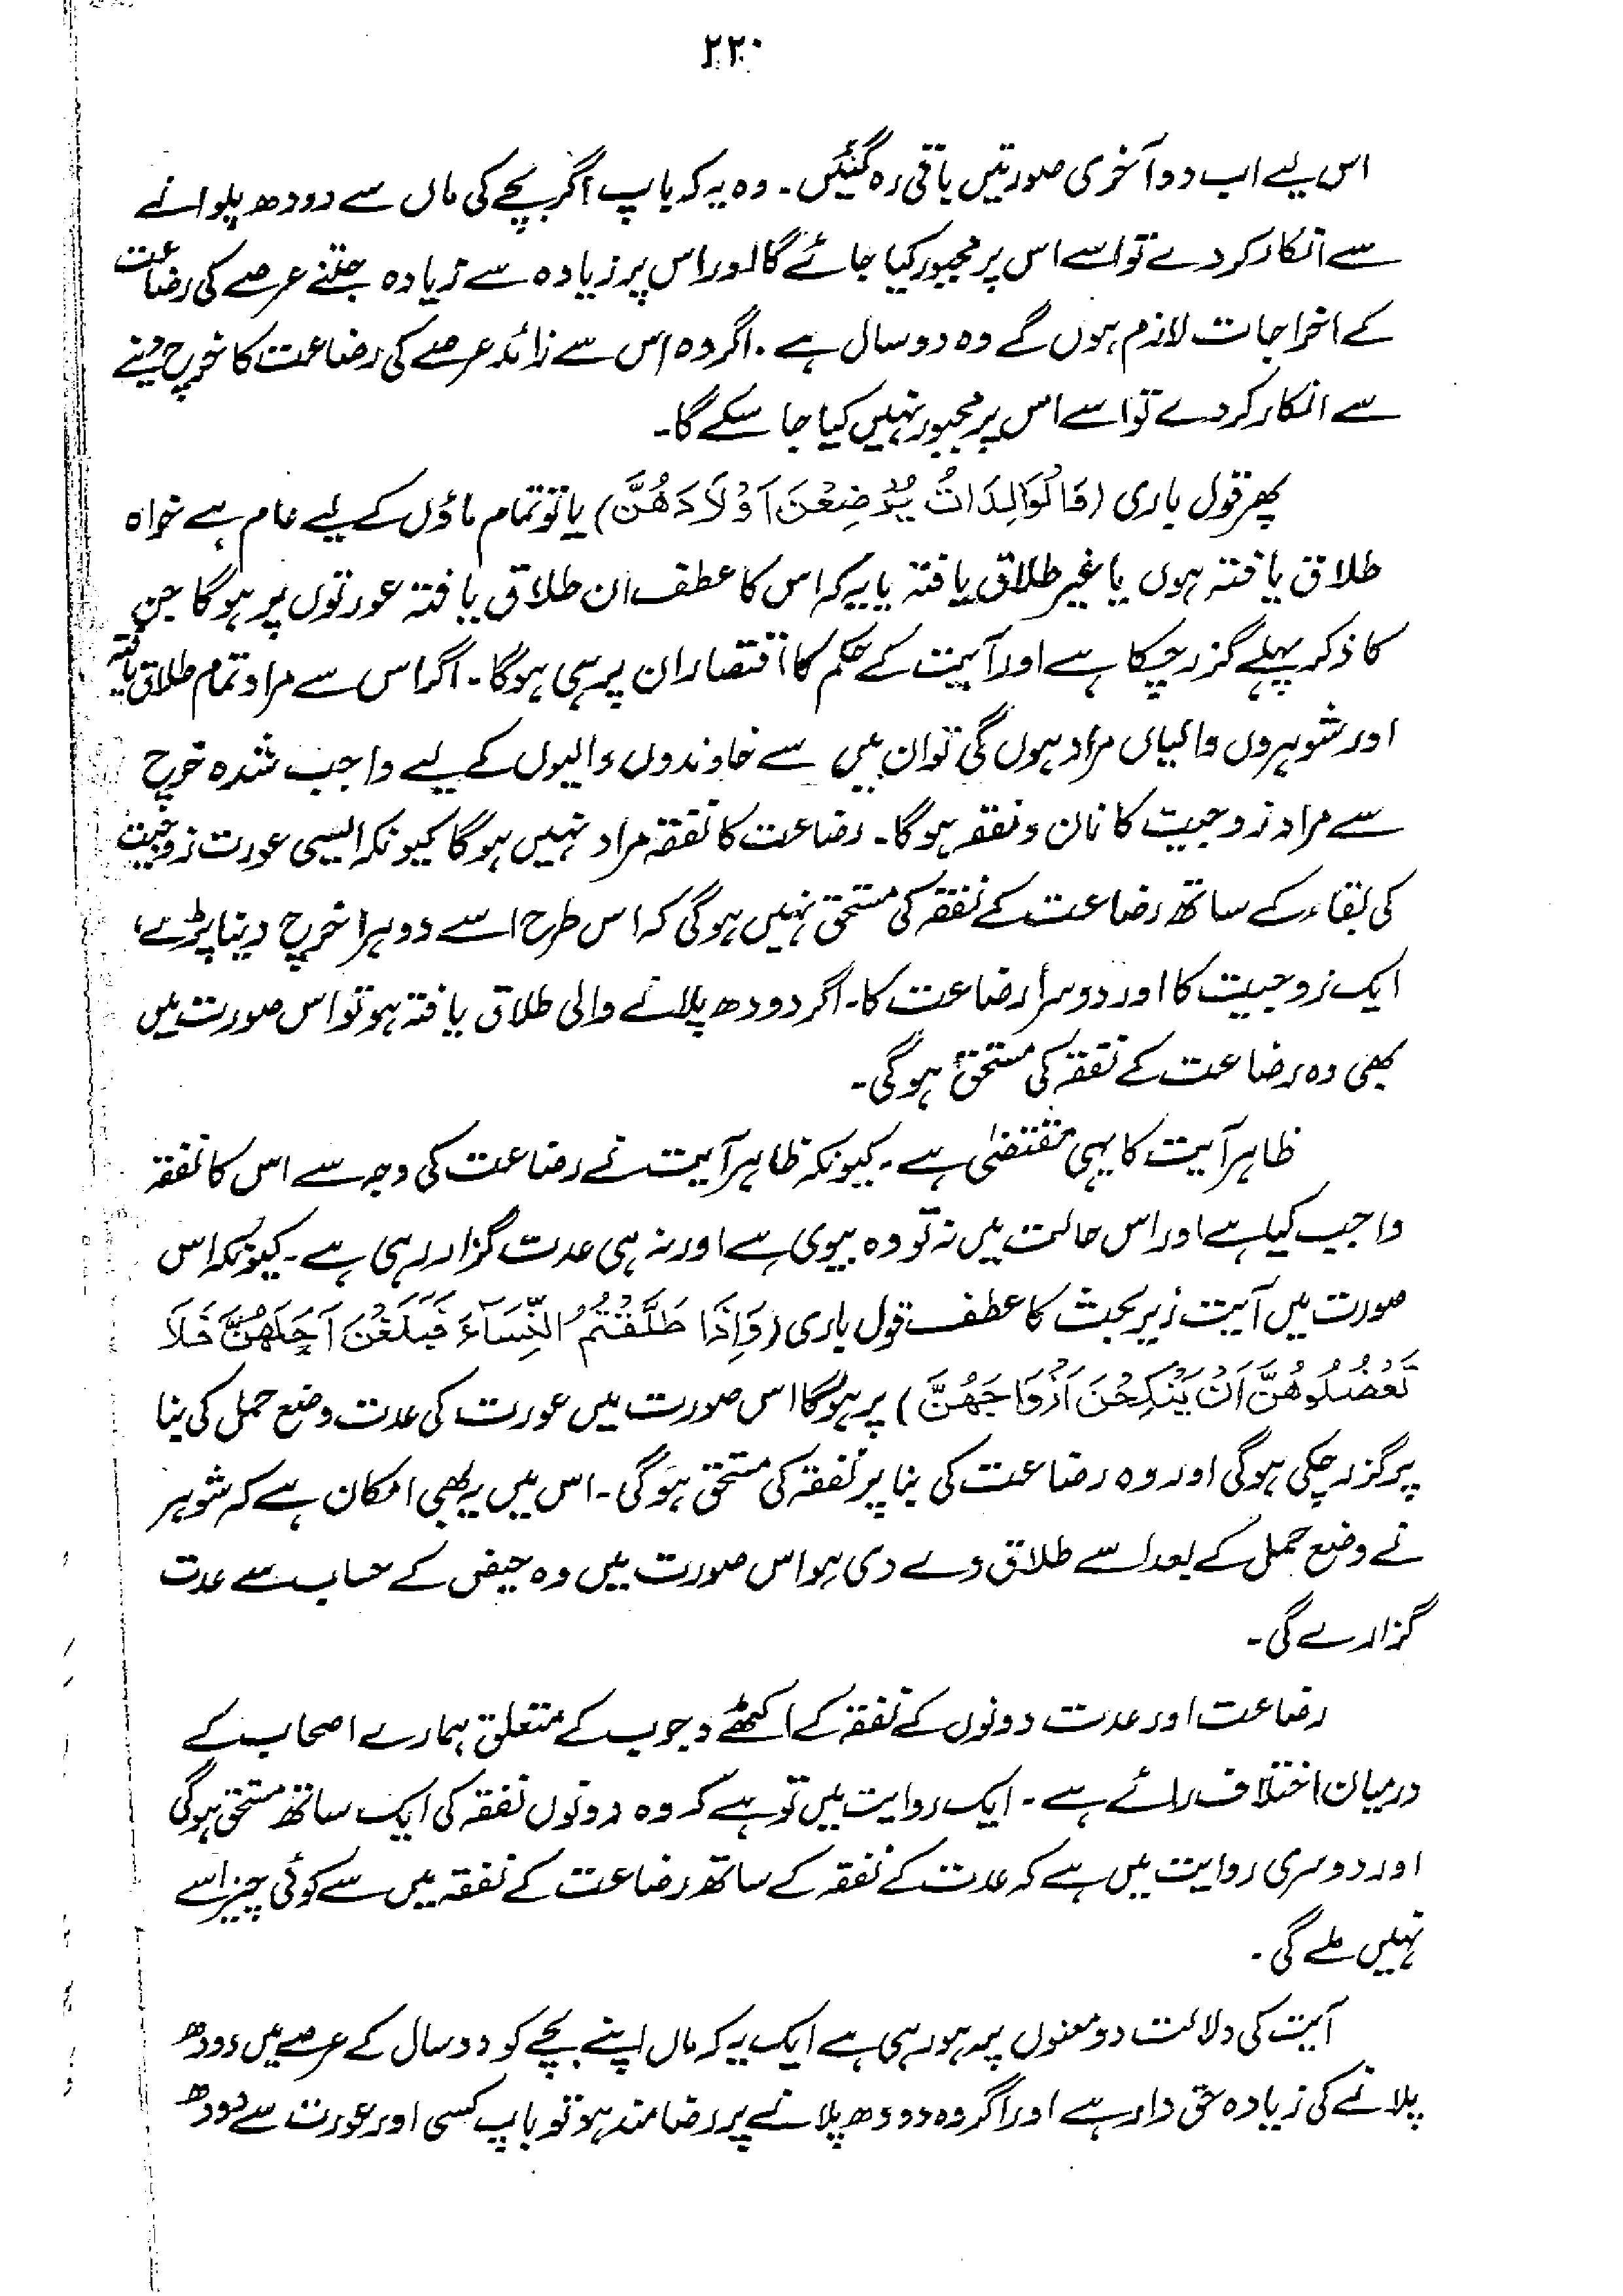 ۲۲۰
اس لیے اب دو آخری صورتیں باقی رہ گئیں۔ وہ یہ کہ باپ اگر بچے کی ماں سے دودھ پلوانے
سے انکار کر دے تو اسے اس پر مجبور کیا جائے گا اور اس پر زیادہ سے زیادہ جتنے عرصے کی رضاعت
کے اخراجات لازم ہوں گے وہ دو سال ہے۔ اگر وہ اس سے زائد عرصے کی رضاعت کا خرچ دینے
سے انکار کر دے تو اسے اس پر مجبور نہیں کیا جا سکے گا۔
پھر قول باری (فَالْوَالِدَاتُ يُرْضِعْنَ اَوْلَادَهُنَّ) یا تو تمام ماؤں کے لیے عام ہے خواہ
طلاق یافتہ ہوں یا غیر طلاق یافتہ یا یہ کہ اس کا عطف ان طلاق یافتہ عورتوں پر ہو گا جن
کا ذکر پہلے گزر چکا ہے اور آیت کے حکم کا اقتصار ان پر ہی ہوگا۔ اگر اس سے مراد تمام طلاق یافتہ
اور شوہروں والیاں مراد ہوں گی تو ان میں سے خاوندوں والیوں کے لیے واجب شدہ خرچ
سے مراد زوجیت کا نان و نفقہ ہو گا۔ رضاعت کا نفقہ مراد نہیں ہو گا کیونکہ ایسی عورت زوجیت
کی بقاء کے ساتھ رضاعت کے نفقہ کی مستحق نہیں ہوگی کہ اس طرح اسے دوہرا خرچ دینا پڑے،
ایک زوجیت کا اور دوسرا رضاعت کا۔ اگر دودھ پلانے والی طلاق یافتہ ہو تو اس صورت میں
بھی وہ رضاعت کے نفقہ کی مستحق ہو گی۔
ظاہر آیت کا یہی مقتضیٰ ہے۔ کیونکہ ظاہر آیت نے رضاعت کی وجہ سے اس کا نفقہ
واجب کیا ہے اور اس حالت میں نہ تو وہ بیوی ہے اور نہ ہی عدت گزار رہی ہے۔ کیونکہ اس
صورت میں آیت زیر بحث کا عطف قول باری (وَاِذَا طَلَّقْتُمُ النِّسَآءَ فَبَلَغْنَ اَجَلَهُنَّ فَلَا
تَعْضُلُوهُنَّ اَنْ يَنْكِحْنَ اَزْوَاجَهُنَّ) پر ہوگا اس صورت میں عورت کی عدت وضع حمل کی بنا
پر گزر چکی ہو گی اور وہ رضاعت کی بنا پر نفقہ کی مستحق ہوگی۔ اس میں یہ بھی امکان ہے کہ شوہر
نے وضع حمل کے بعد اسے طلاق دے دی ہو اس صورت میں وہ حیض کے حساب سے عدت
گزارے گی۔
رضاعت اور عدت دونوں کے نفقہ کے اکٹھے وجوب کے متعلق ہمارے اصحاب کے
درمیان اختلاف رائے ہے۔ ایک روایت میں تو ہے کہ وہ دونوں نفقہ کی ایک ساتھ مستحق ہو گی
اور دوسری روایت میں ہے کہ عدت کے نفقہ کے ساتھ رضاعت کے نفقہ میں سے کوئی چیز اسے
نہیں ملے گی۔
آیت کی دلالت دو معنوں پر ہو رہی ہے ایک یہ کہ ماں اپنے بچے کو دو سال کے عرصے میں دودھ
پلانے کی زیادہ حق دار ہے اور اگر وہ دودھ پلانے پر رضامند ہو تو باپ کسی اور عورت سے دودھ